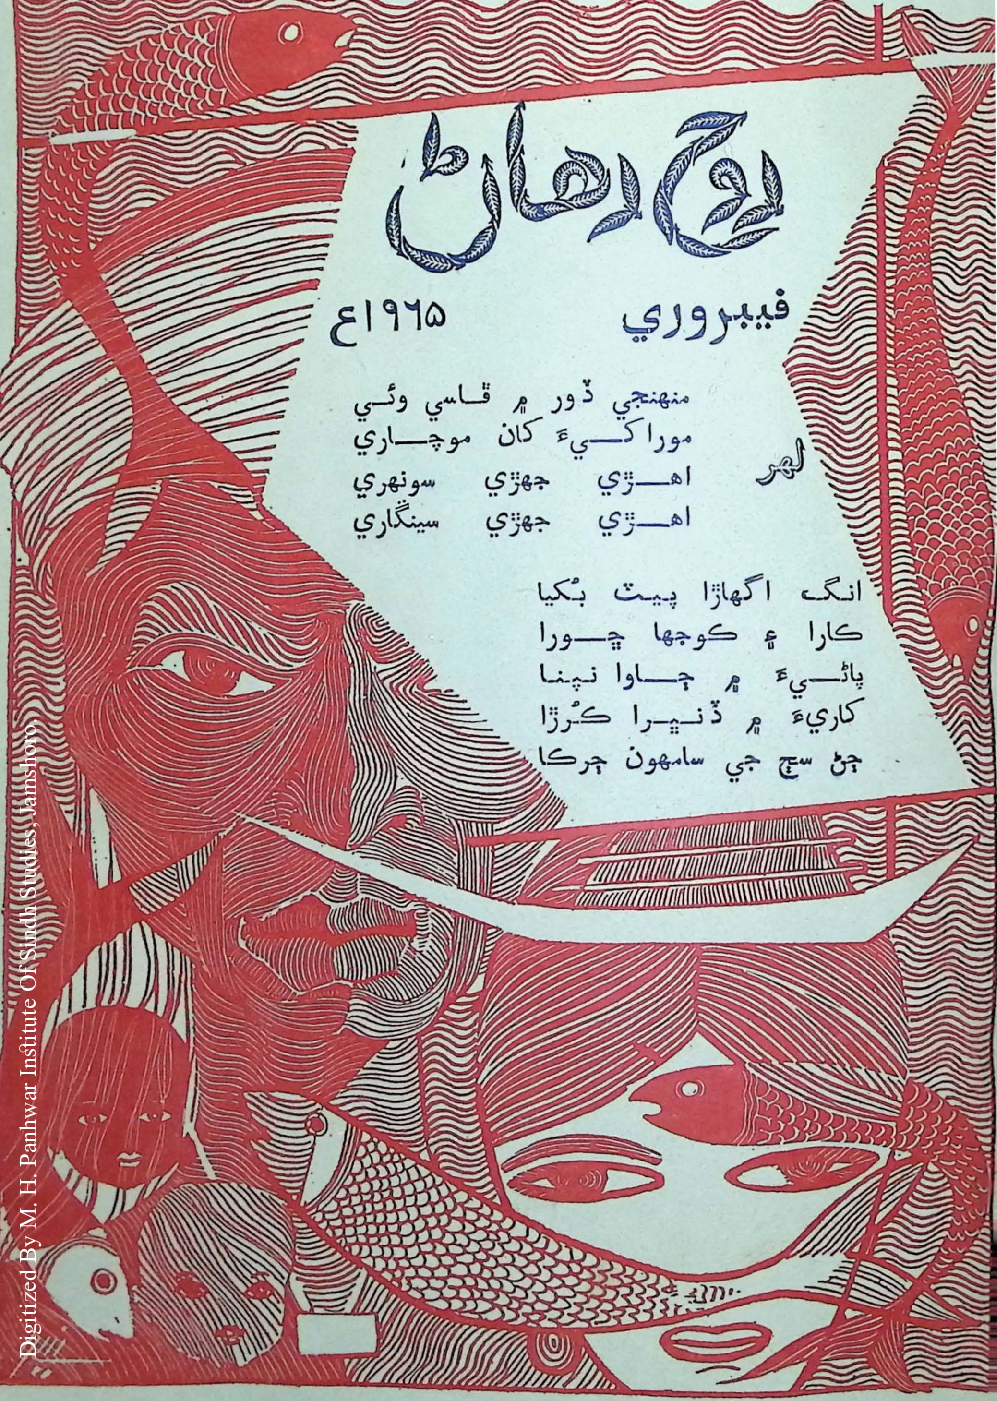 روح رهاڻ
فيبروري ۱۹۶۵ع
لهر
منهنجي ڏور ۾ ڦاسي وئي
موراکيءَ کان موچاري
اهڙي جهڙي سونهري
اهڙي جهڙي سينگاري
انگ اگهاڙا پيٽ بُکيا
ڪارا ۽ ڪوجها ڇورا
پاڻيءَ ۾ ڄاوا نپنا
کاريءَ ۾ ڏنڀرا ڪُرڙا
ڄڻ سج جي سامهون چرڪا
Digitized By M. H. Panhwar Institute Of Sindh Studies, Jamshoro.